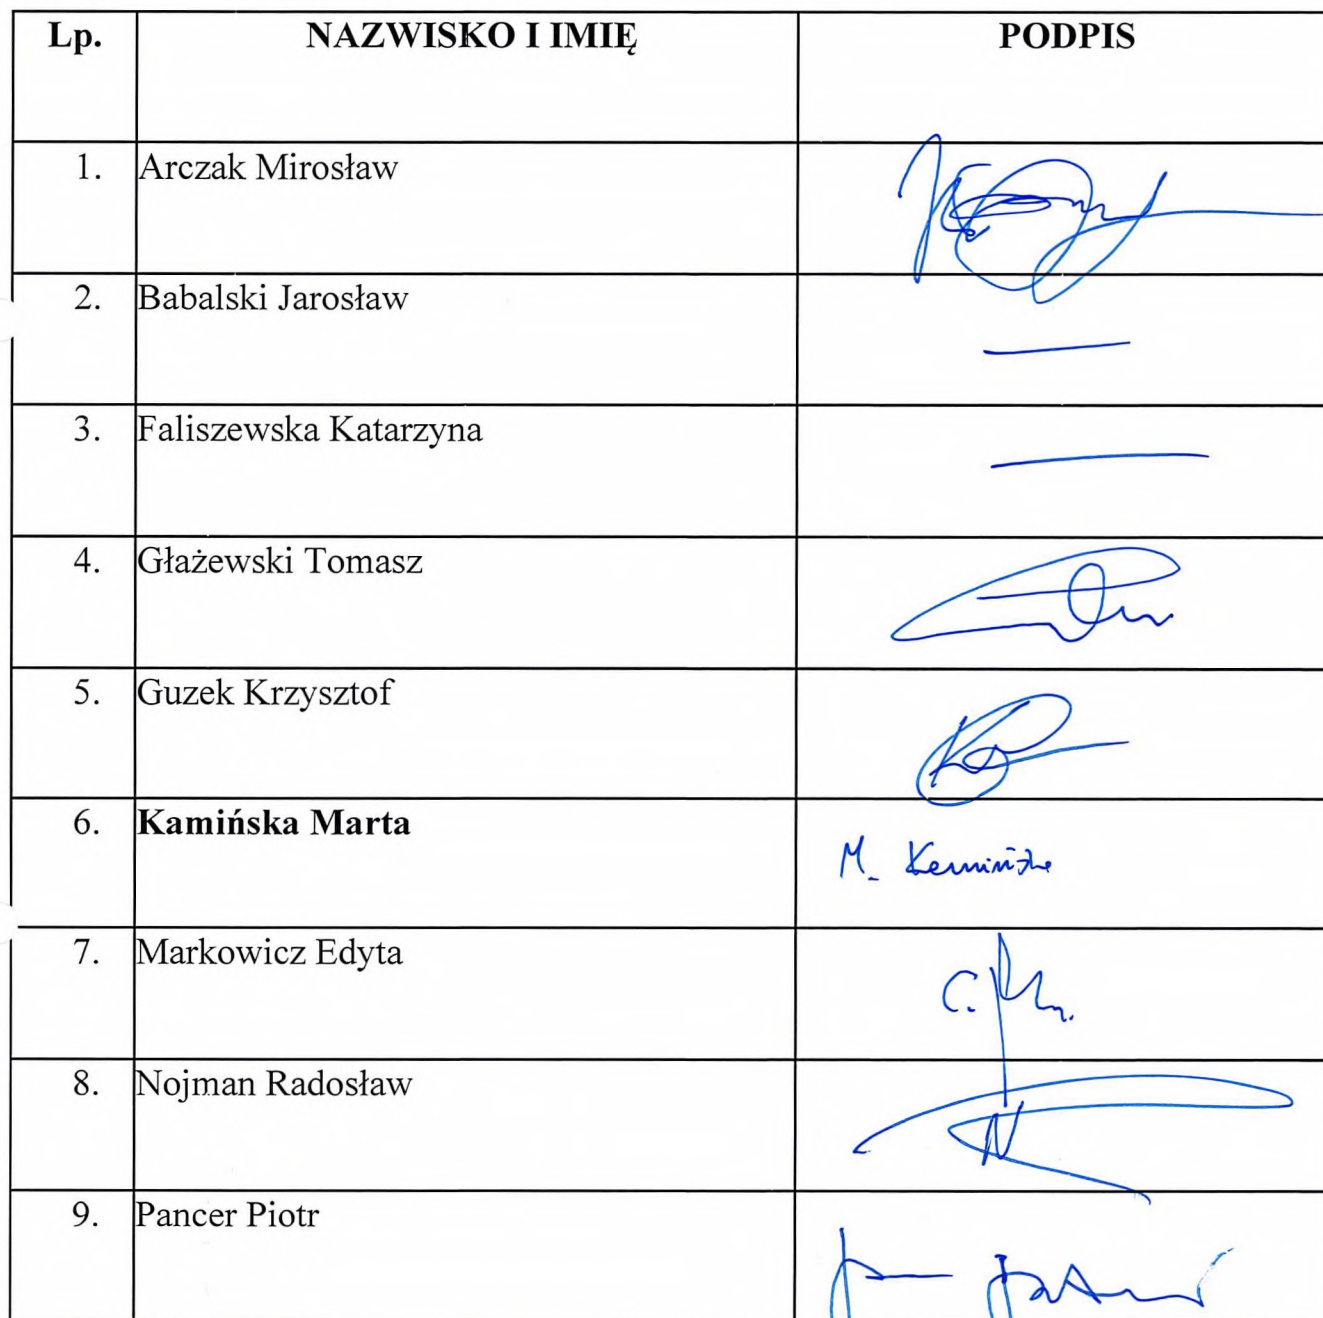 Lp. NAZWISKO I IMIĘ PODPIS
1. Arczak Mirosław
2. Babalski Jarosław
3. Faliszewska Katarzyna
4. Głażewski Tomasz
5. Guzek Krzysztof
6. Kamińska Marta
M. Kamińska
7. Markowicz Edyta
8. Nojman Radosław
9. Pancer Piotr